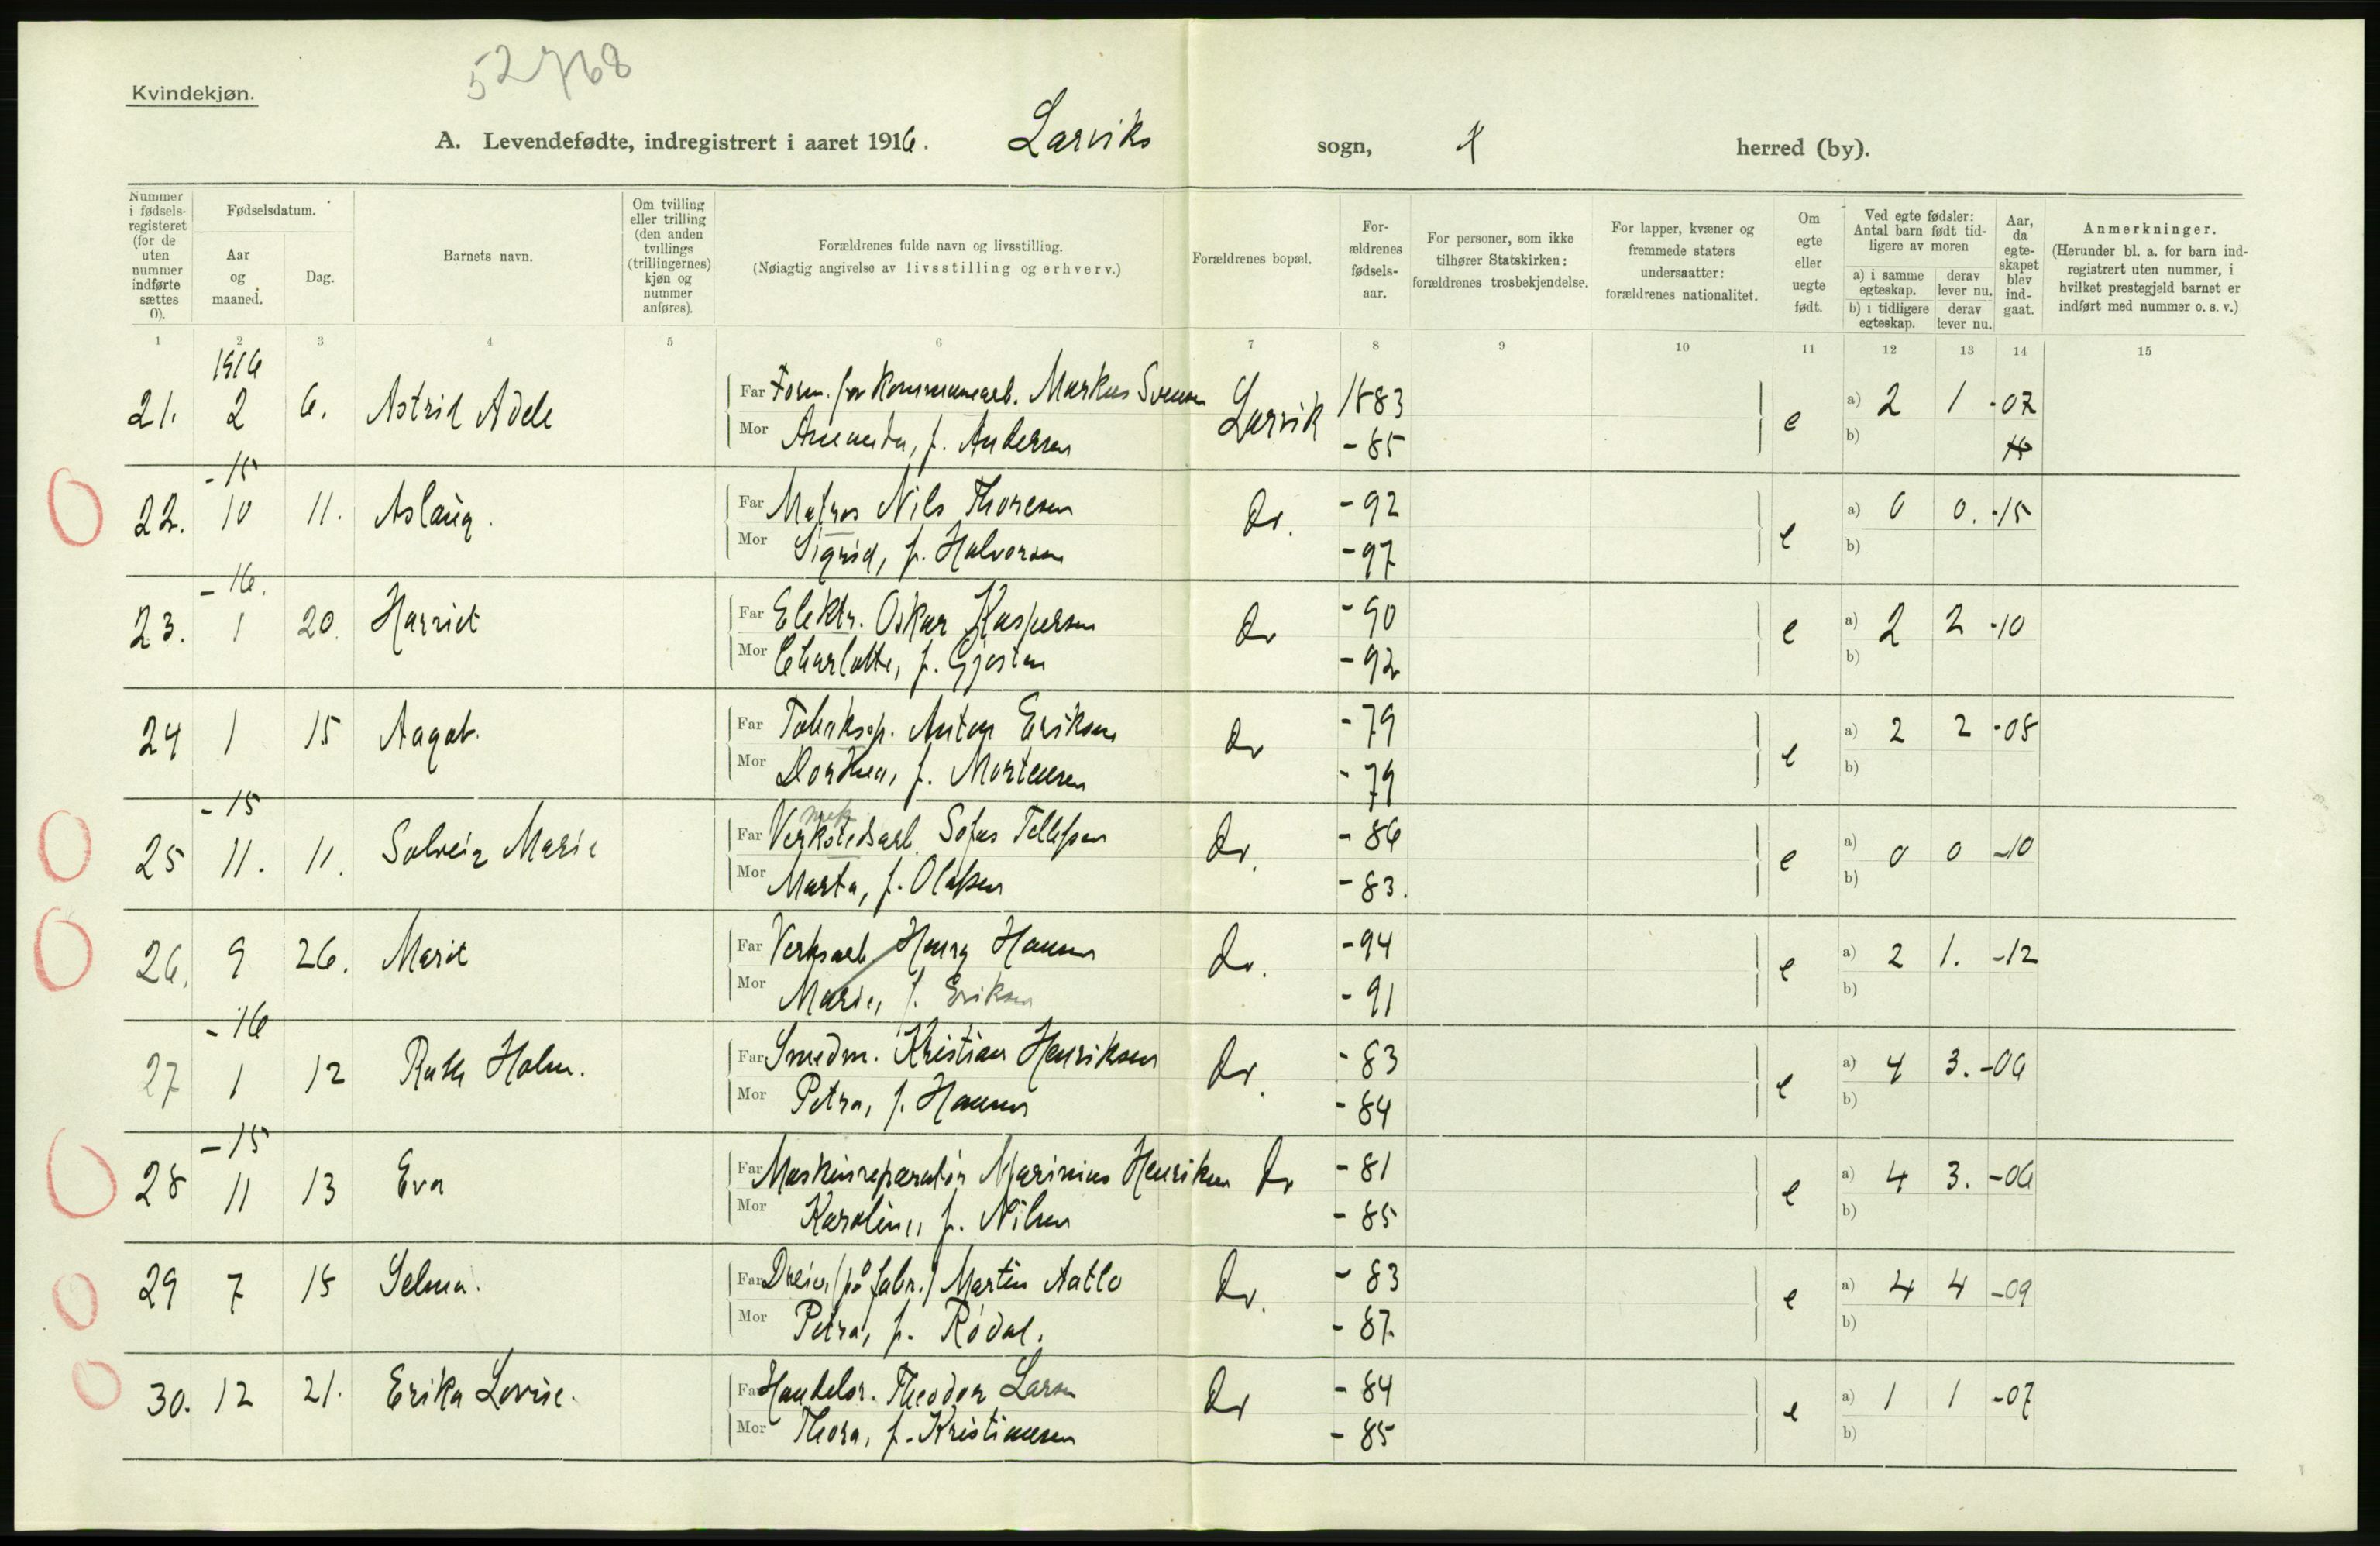 52768
Kvindekjøn.
A. Levendefødte, indregistrert i aaret 1916. Larviks sogn, herred (by).
Nummer i fødsels-registeret (for de uten nummer indførte sættes 0).
Fødselsdatum.
Aar og maaned.
Dag.
Barnets navn.
Om tvilling eller trilling (den anden tvillings (trillingernes) kjøn og nummer anføres).
Forældrenes fulde navn og livsstilling.
(Nøiagtig angivelse av livsstilling og erhverv.)
Forældrenes bopæl.
For-ældrenes fødsels-aar.
For personer, som ikke tilhører Statskirken: forældrenes trosbekjendelse.
For lapper, kvæner og fremmede staters undersaatter: forældrenes nationalitet.
Om egte eller uegte født.
Ved egte fødsler: Antal barn født tid-ligere av moren
a) i samme egteskap. derav lever nu.
b) i tidligere egteskap. derav lever nu.
Aar, da egte-skapet blev ind-gaat.
Anmerkninger.
(Herunder bl. a. for barn ind-registrert uten nummer, i hvilket prestegjeld barnet er indført med nummer o. s. v.)
1 2 3 4 5 6 7 8 9 10 11 12 13 14 15
1916
21. 2 6. Astrid Adele Far Form. for kommunearb. Markus Svensen Larvik 1883 e a) 2 1 -07
Mor Amanda, f. Andersen -85 b)
-15
22. 10 11. Aslaug. Far Matros Nils Thoresen do. -92 e a) 0 0. -15
Mor Sigrid, f. Halvorsen -97 b)
-16.
23. 1 20. Harriet Far Elektr. Oskar Kaspersen do -90 e a) 2 2 -10
Mor Charlotte, f. Gjøsten -92 b)
24 1 15 Aagot. Far Tobaksp. Anton Eriksen do -79 e a) 2 2 -08
Mor Dorthea, f. Mortensen -79 b)
-15
mek
25 11. 11. Solveig Marie Far Verkstedsarb. Sofus Tellefsen do. -86 e a) 0 0 -10
Mor Marta, f. Olafsen -83. b)
26. 9 26. Marit Far Verksarb Henry Hansen do. -94 e a) 2 1. -12
Mor Marie, f. Eriksen -91 b)
-16
27 1 12 Ruth Holm. Far Smedm. Kristian Henriksen do. -83 e a) 4 3. -06
Mor Petra, f. Hansen -84 b)
-15
28 11 13 Eva Far Maskinreparatør Marinius Henriksen do -81 e a) 4 3. -06
Mor Karoline, f. Nilsen -85 b)
29 7 18 Selma. Far Dreier (på fabr.) Martin Aatlo do. -83 e a) 4 4 -09
Mor Petra, f. Rødal. -87. b)
30. 12 21. Erika Lovise. Far Handelsr. Theodor Larsen do -84 e a) 1 1 -07
Mor Thora, f. Kristiansen -85 b)